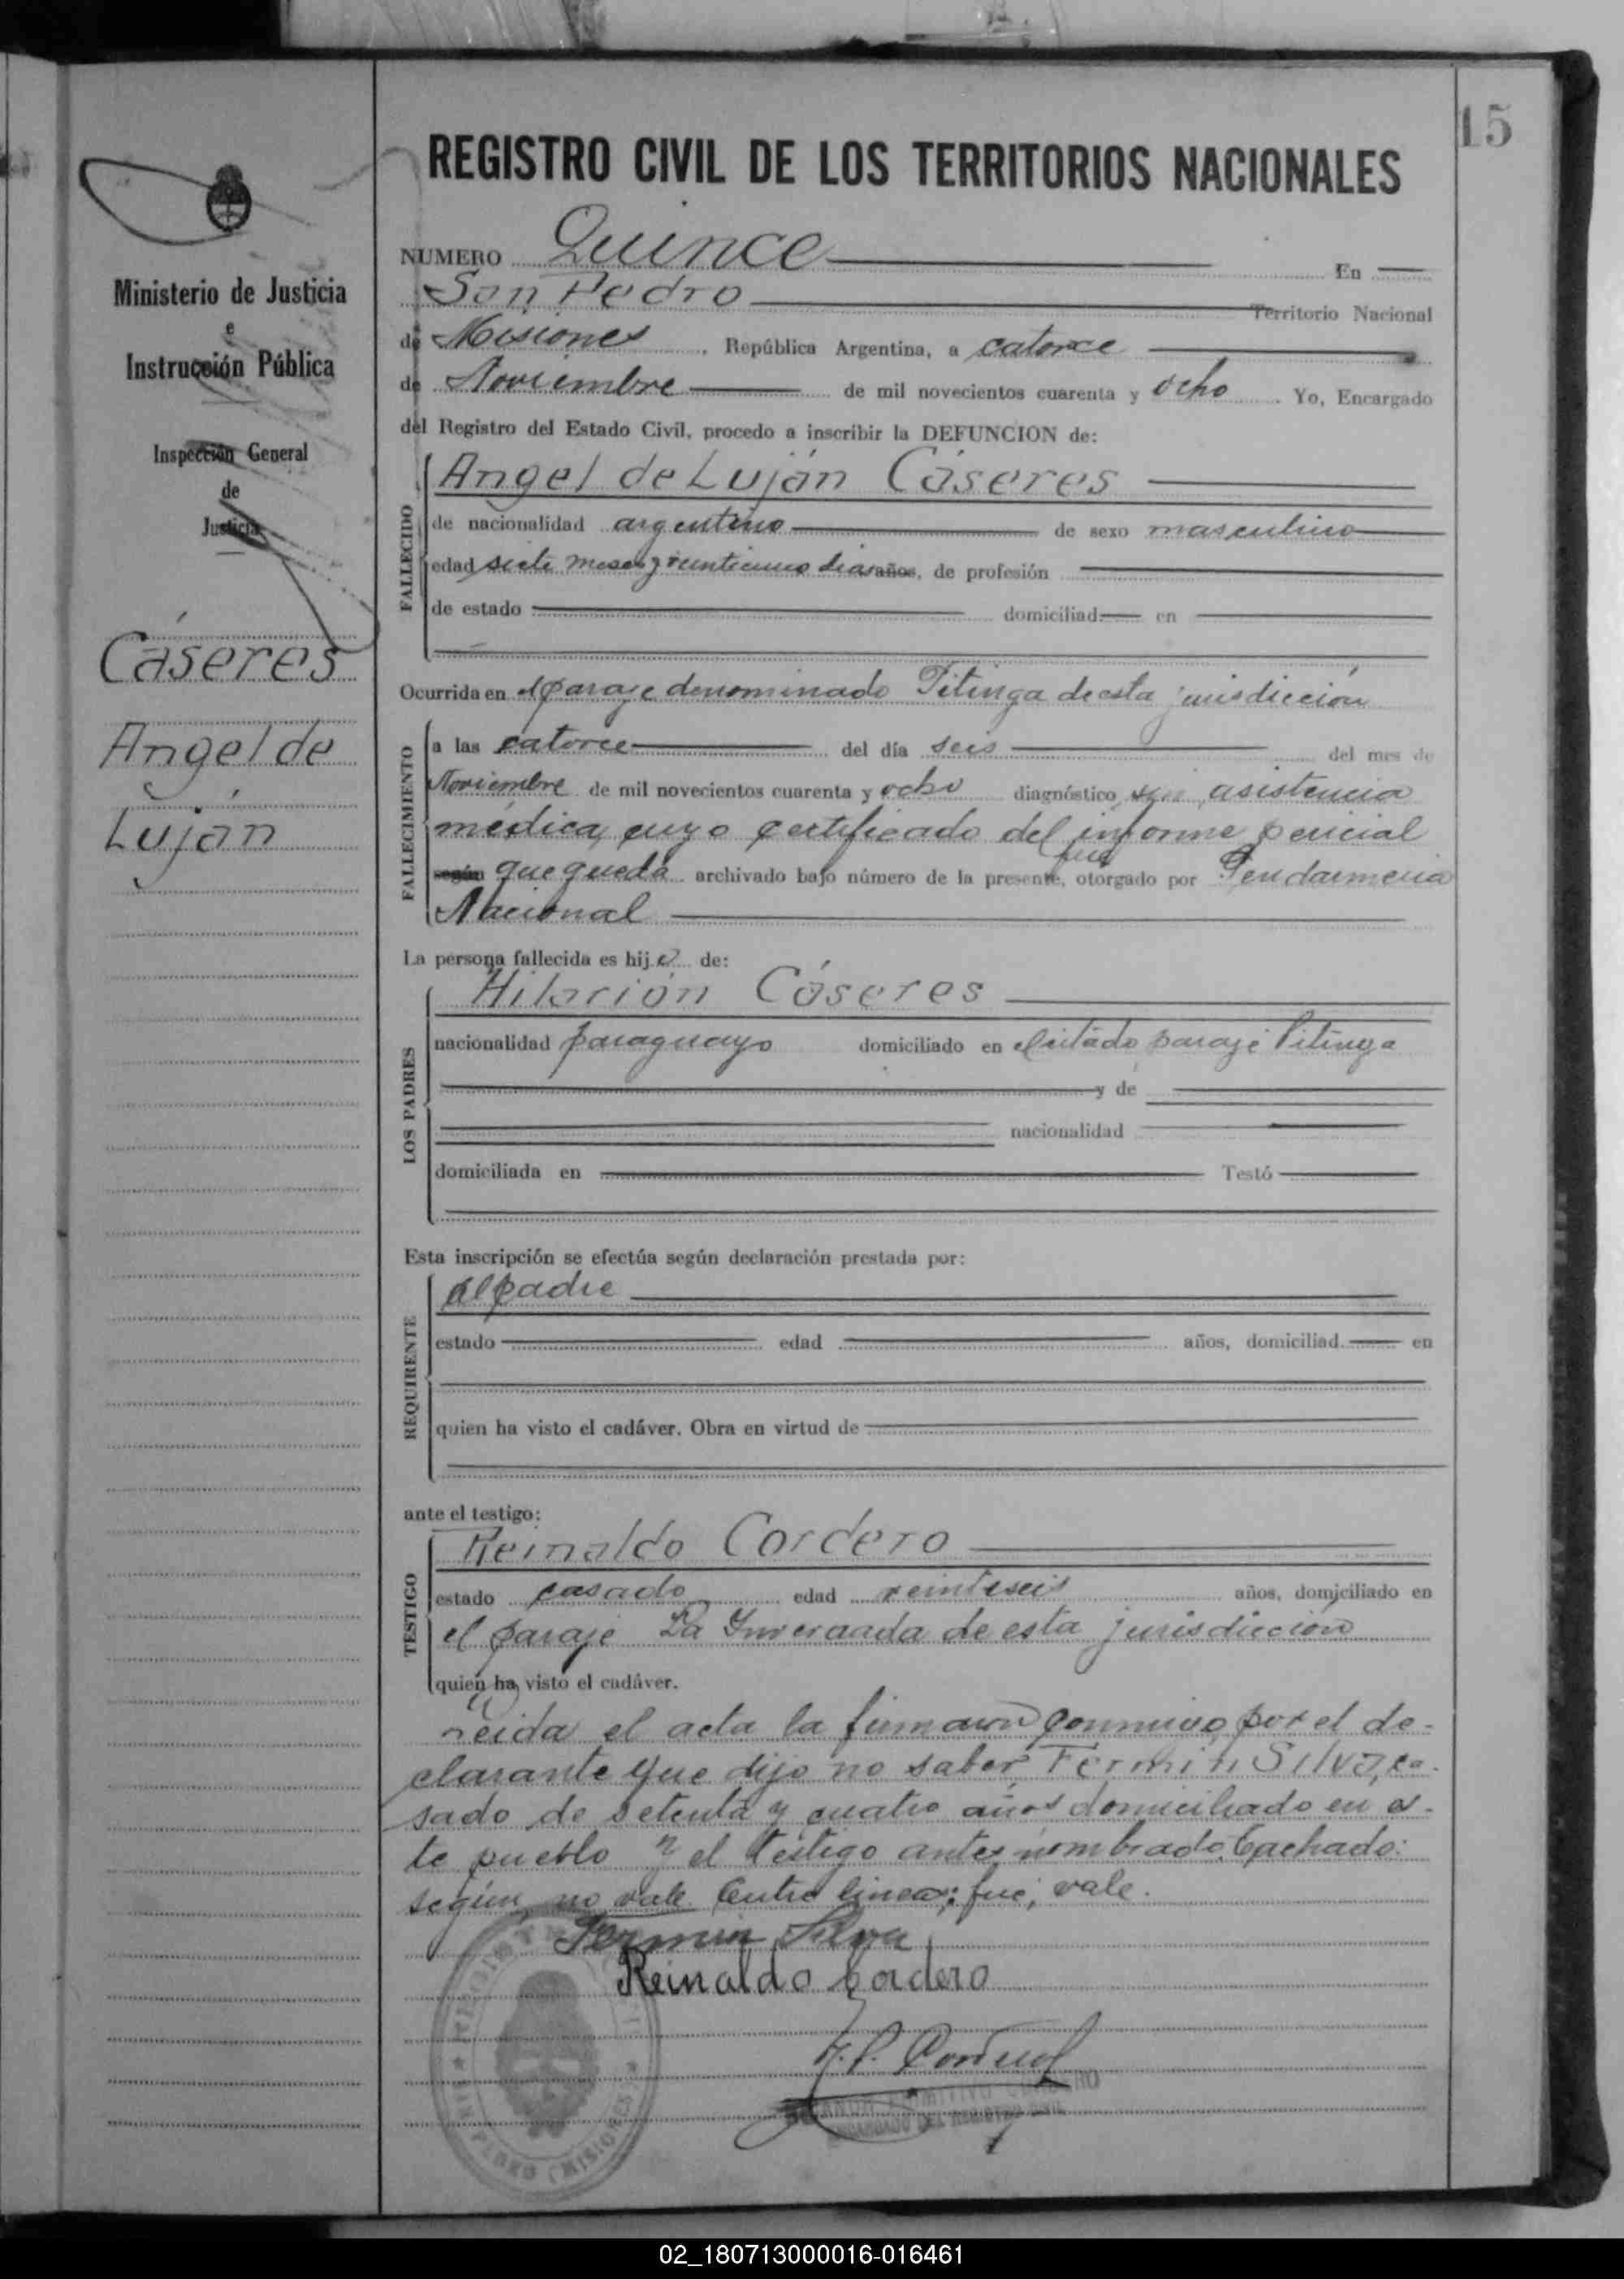 15
REGISTRO CIVIL DE LOS TERRITORIOS NACIONALES
Ministerio de Justicia
e
Instrucción Pública
Inspección General
de
Justicia
Cáseres
Angel de
Luján
NUMERO Quince En
San Pedro Territorio Nacional
de Misiones, República Argentina, a catorce
de Noviembre de mil novecientos cuarenta y ocho. Yo, Encargado
del Registro del Estado Civil, procedo a inscribir la DEFUNCION de:
FALLECIDO
Angel de Luján Cáseres
de nacionalidad argentino de sexo masculino
edad siete meses y veintiuno dias años, de profesión
de estado domiciliad en
Ocurrida en el paraje denominado Pitinga de esta jurisdicción
FALLECIMIENTO
a las catorce del día seis del mes de
Noviembre de mil novecientos cuarenta y ocho diagnóstico sin asistencia
médica, cuyo certificado del informe pericial
fué
según que queda archivado bajo número de la presente, otorgado por Gendarmeria
Nacional
La persona fallecida es hijo de:
LOS PADRES
Hilarión Cáseres
nacionalidad paraguayo domiciliado en el citado paraje Pitinga
y de
nacionalidad
domiciliada en Testó
Esta inscripción se efectúa según declaración prestada por:
REQUIRENTE
el padre
estado edad años, domiciliad en
quien ha visto el cadáver. Obra en virtud de
ante el testigo:
TESTIGO
Reinaldo Cordero
estado casado edad veintiseis años, domiciliado en
el paraje La Invernada de esta jurisdicción
quien ha visto el cadáver.
Leida el acta la firmaron conmigo, por el de-
clarante que dijo no saber Fermin Silva, ca-
sado de setenta y cuatro años domiciliado en es-
te pueblo y el testigo antes nombrado. Tachado:
según, no vale. Entre lineas: fué, vale.
Fermin Silva
Reinaldo Cordero
ENCARGADO DEL REGISTRO CIVIL
SAN PEDRO (MISIONES)
02_180713000016-016461